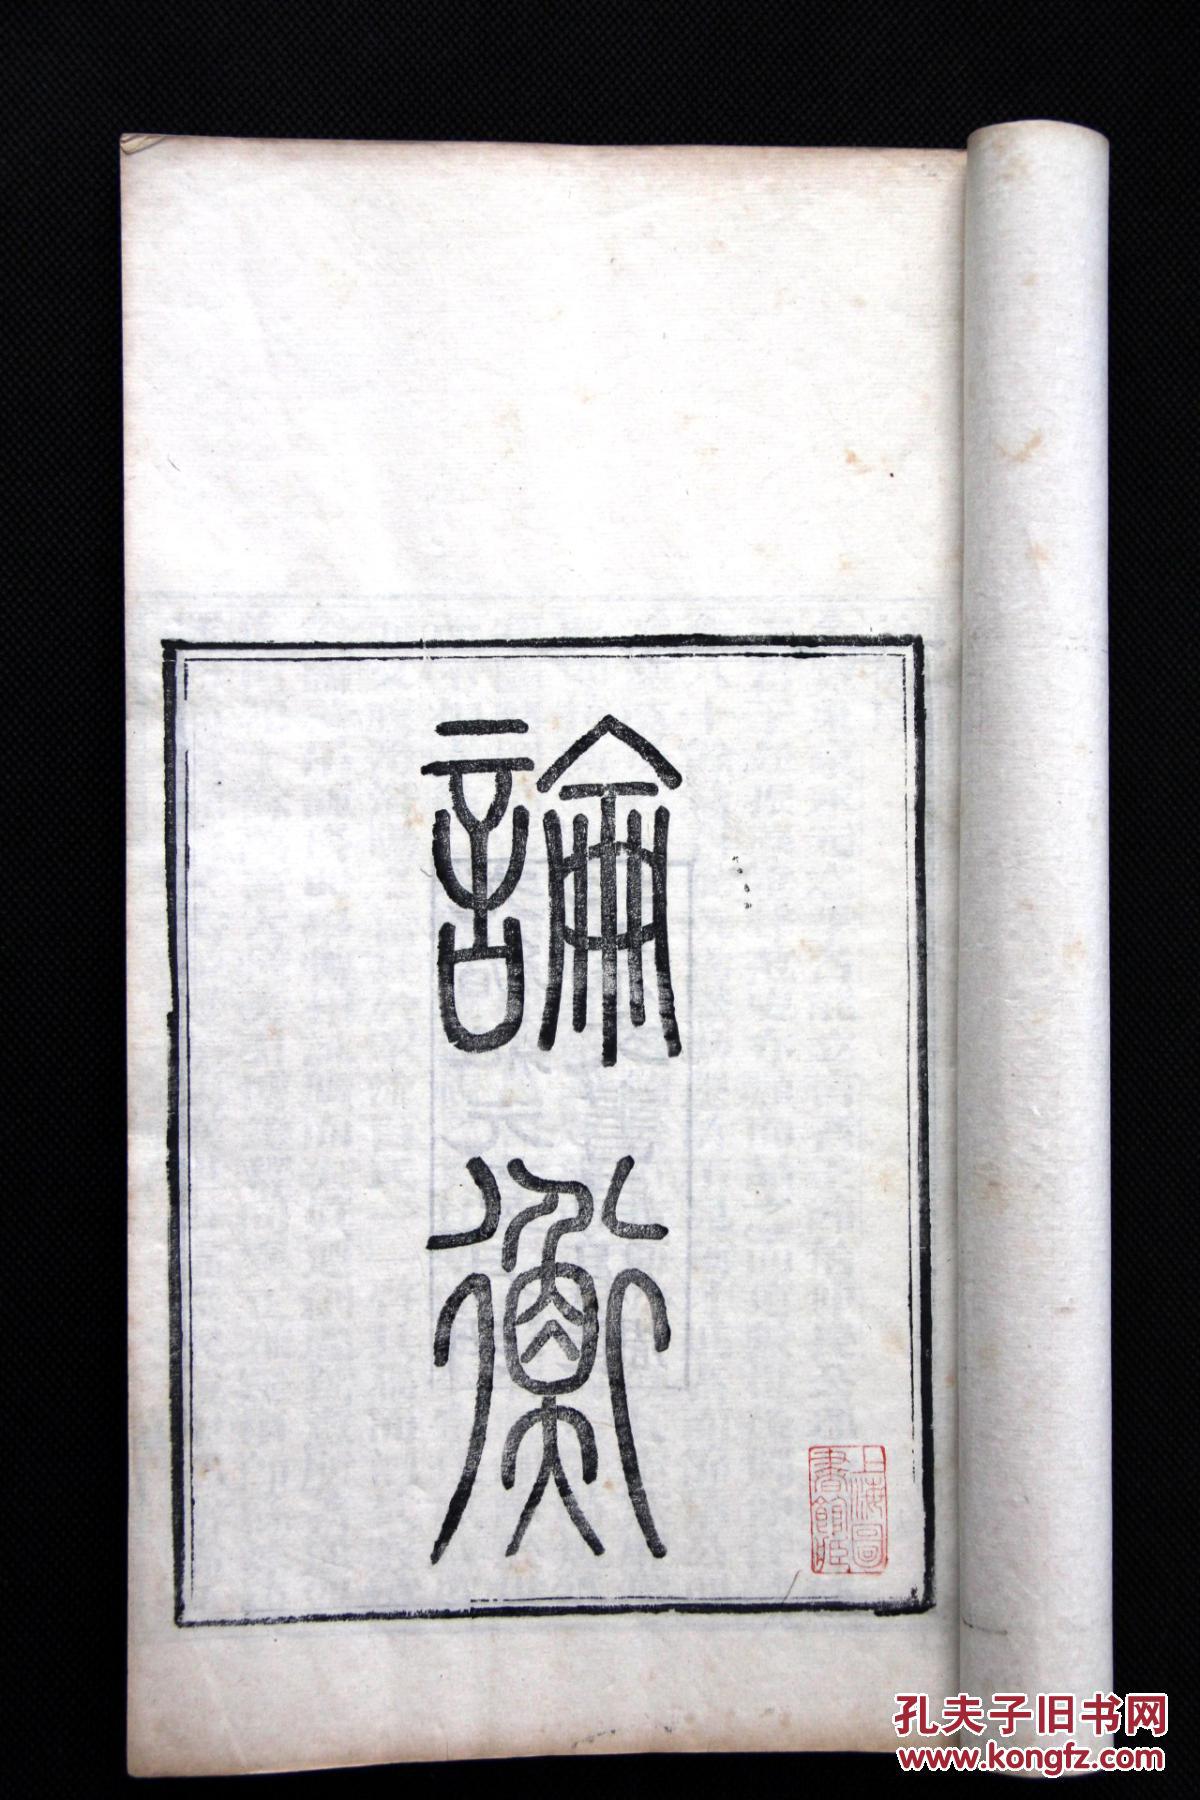 論衡
上海圖
書館藏
孔夫子旧书网
www.kongfz.com